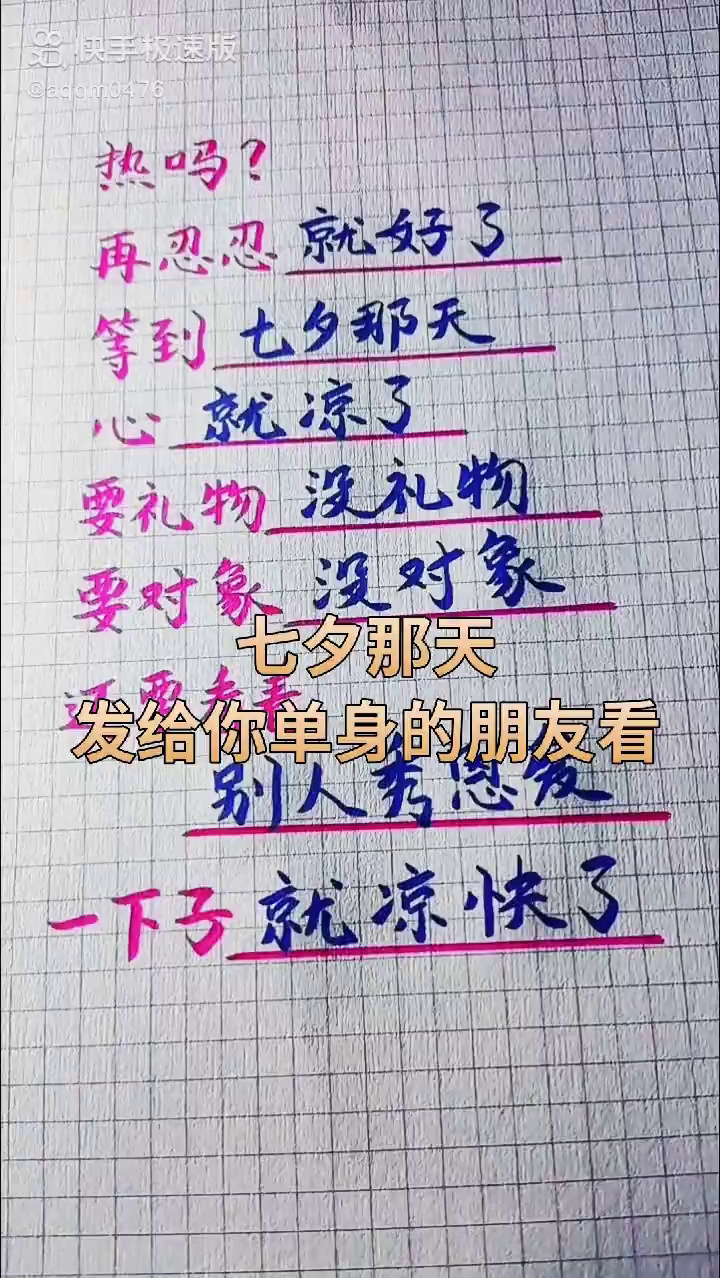 快手极速版
@aqqm0476
热吗？
再忍忍就好了
等到七夕那天
心就凉了
要礼物没礼物
要对象没对象
七夕那天
还要看着
发给你单身的朋友看
别人秀恩爱
一下子就凉快了